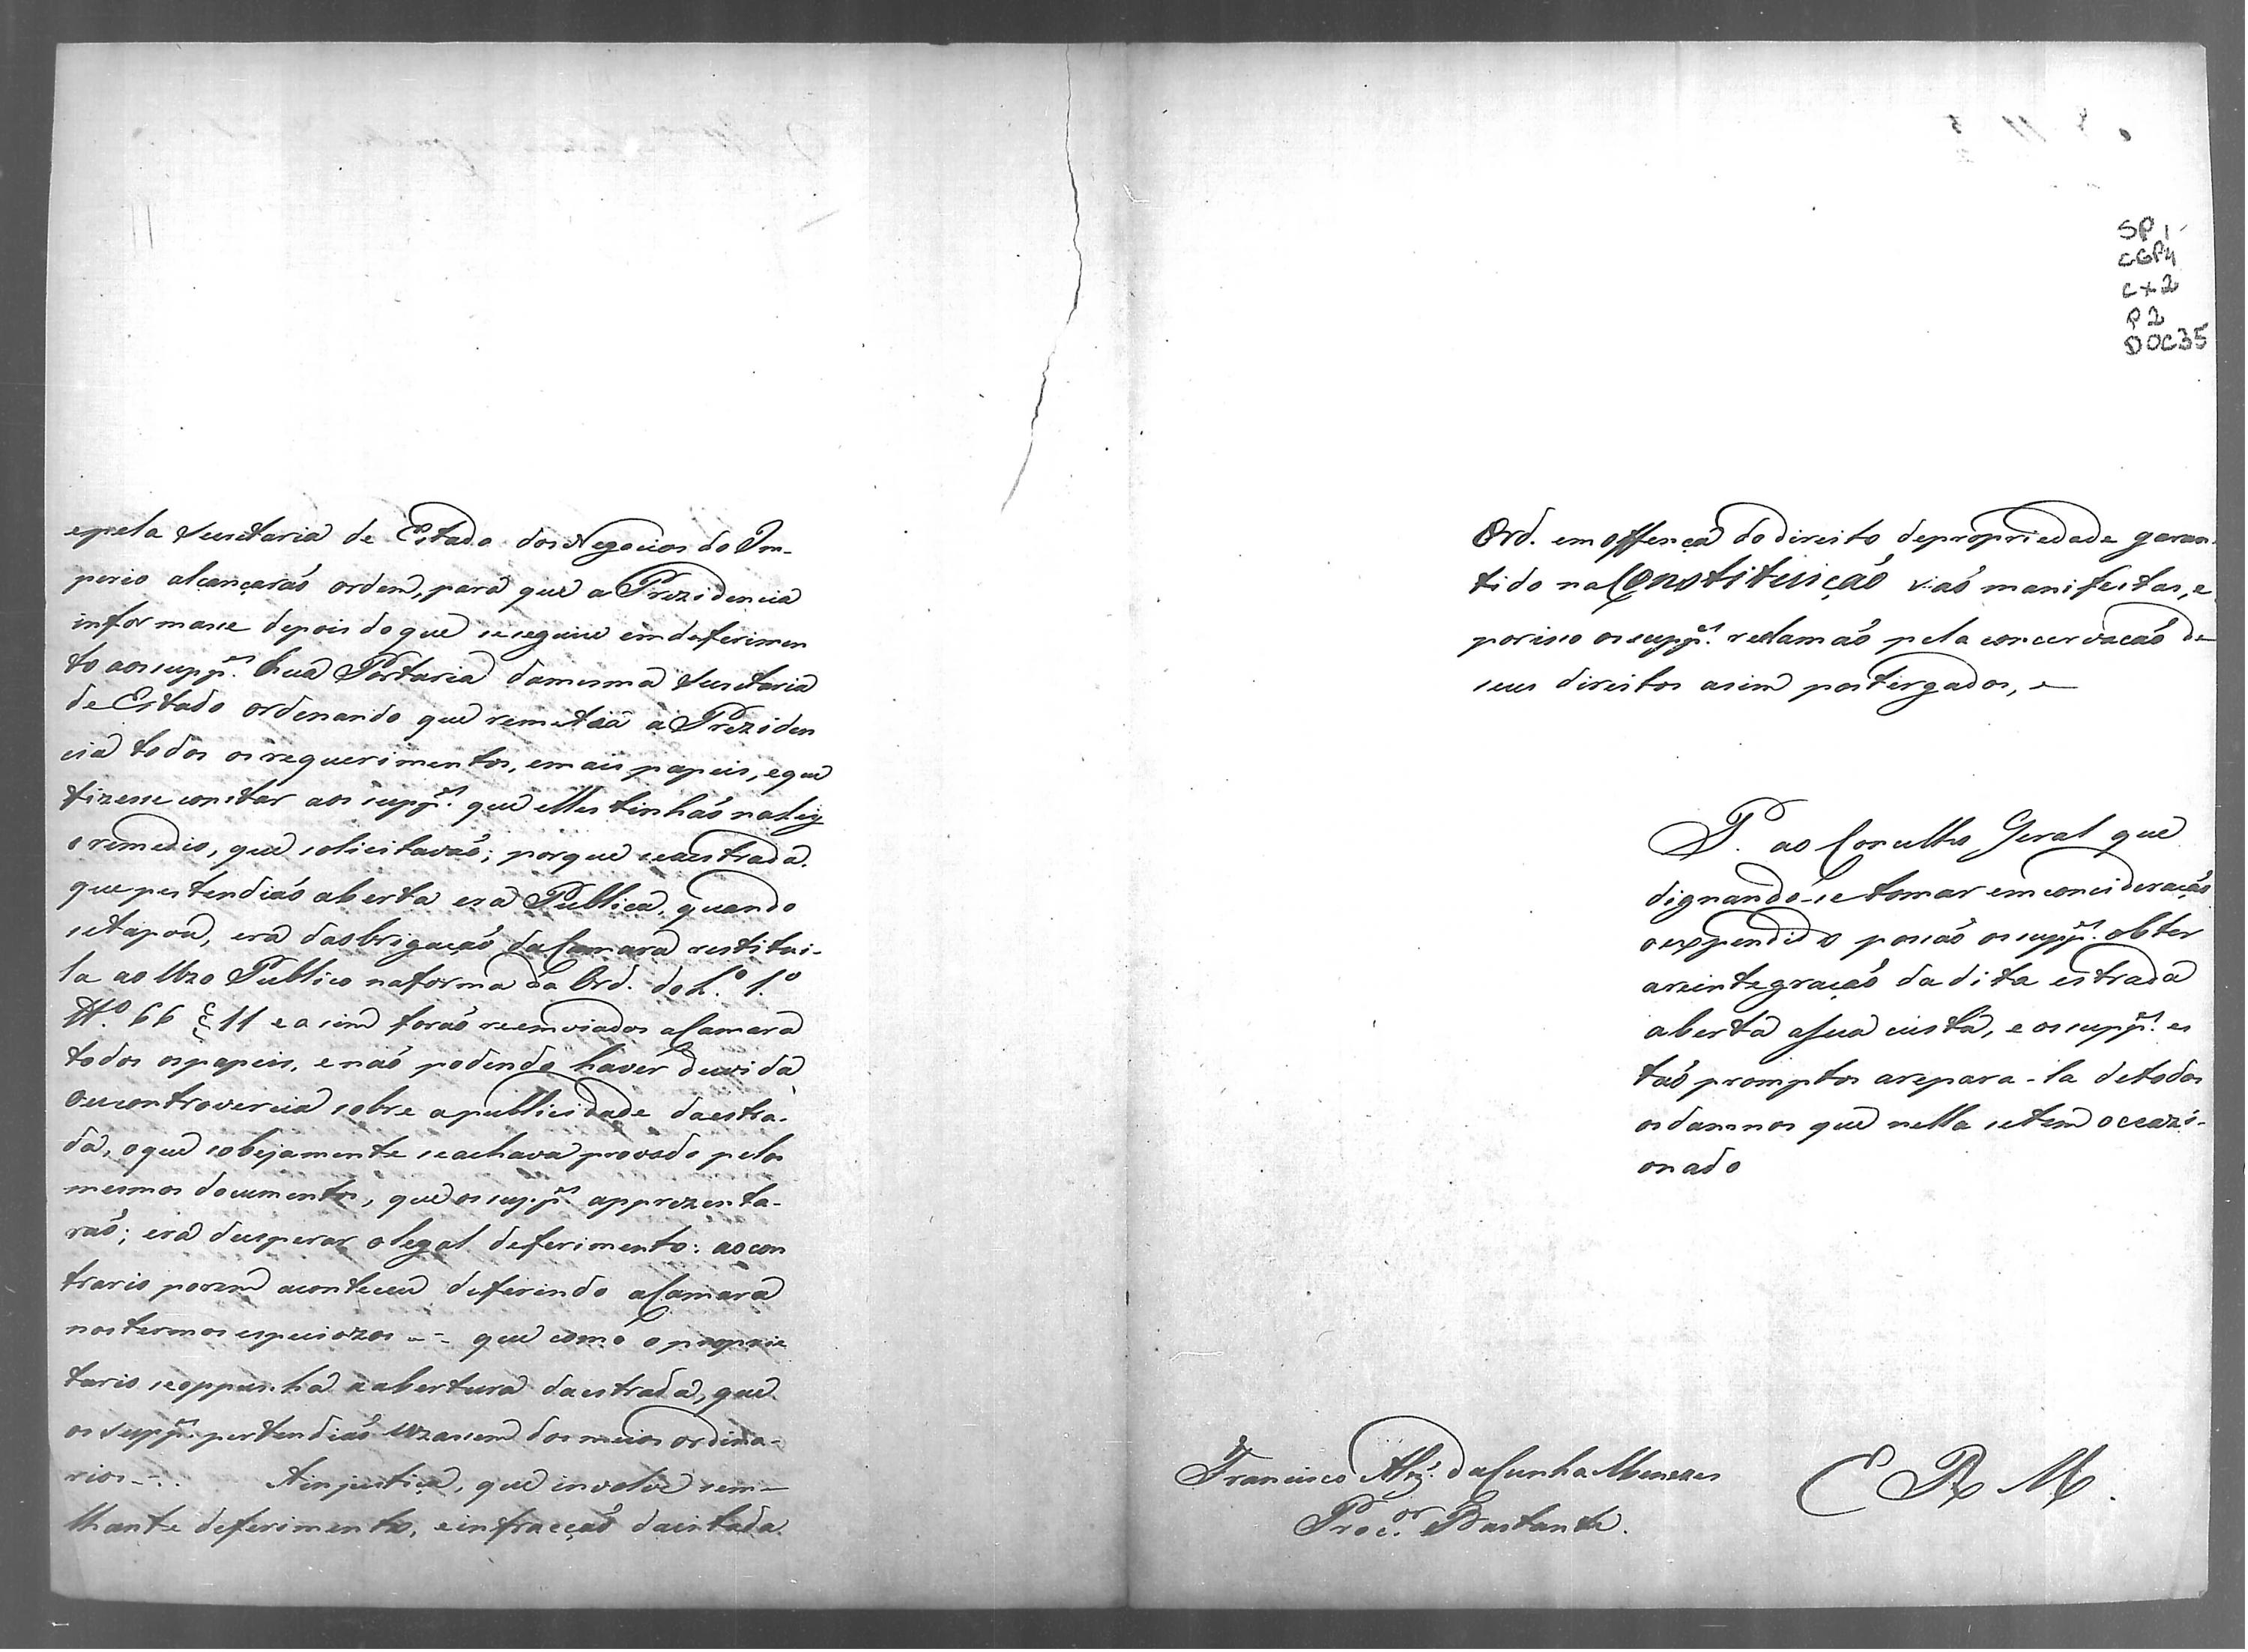 epela Secretaria de Estado dos Negocios do Im-
perio alcançaraõ ordem, para que a Prezidencia
informasse depois do que se seguiu em deferimen
to aos supp.es hua Portaria da mesma Secretaria
de Estado ordenando que remetia á Preziden
cia todos os requerimentos, e mais papeis, e que
fizesse constar aos supp.es que elles tinhaõ na Ley
o remedio, que solicitavaõ; porque se a estrada
que pertendiaõ aberta era Publica, quando
se tapou, era da obrigaçaõ da Camara restitui-
la ao Uzo Publico na forma da Ord. do L.º 1.º
Tt.º 66 § 11 e asim foraõ reenviados a Camara
todos os papeis, e naõ podendo haver duvida
ou controvercia sobre a publicidade da estra-
da, o que sobejamente se achava provado pelos
mesmos documentos, que os supp.es apprezenta-
raõ; era de esperar o legal deferimento: ao con
trario porem aconteceu deferindo a Camara
nos termos especiozos -- que como o proprie
tario se oppunha a abertura da estrada, que
os Supp.es pertendiaõ uzassem dos meios ordina-
rios --. A injustiça, que involve seme-
lhante deferimento, e infracçaõ da citada
SP 1
CGP4
CX 2
P 2
DOC 35
Ord. em offença do direito de propriedade garan-
tido na Constituiçaõ saõ manifestas, e
por isso os supp.es reclamaõ pela concervacaõ de
seus direitos asim postergados, e
P. ao Concelho Geral que
dignando-se tomar em concideraçaõ
o expendido possaõ os supp.es obter
a reintegraçaõ da dita estrada
aberta a sua custa, e os supp.es es
taõ promptos a repara-la de todos
os damnos que nella se tem occazi-
onado
E R M.
Francisco Alz.' da Cunha Menezes
Proc.or Bastante.